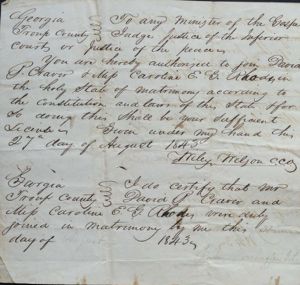 Georgia To any Minister of the Gospel
Troup County Judge, Justice of the Inferior
Court or Justice of the peace
You are hereby authorized to join David
P. & Miss Caroline E. G. Rhodes in
the holy State of matrimony according to
the Constitution and laws of this State & for
so doing this Shall be your Sufficient
License Given under my hand this
27th day of August 1843
Wiley Wilson CCO
Georgia I do certify that mr
Troup County David P. and
Miss Caroline E G Rhodes were duly
joined in matrimony by me this
day of 1843